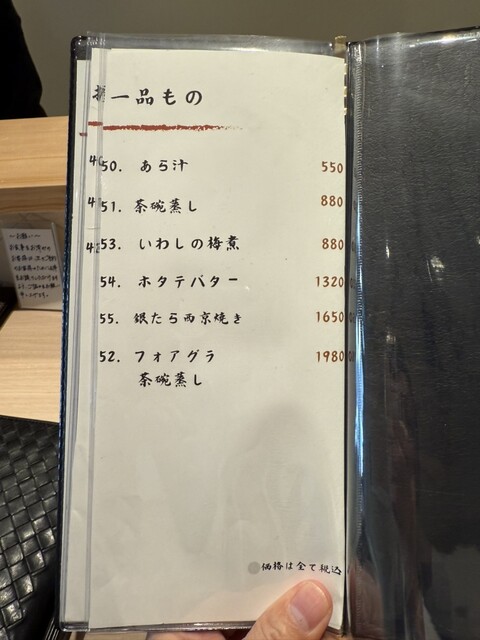 一品もの
50. あら汁 550
51. 茶碗蒸し 880
53. いわしの梅煮 880
54. ホタテバター 1320
55. 銀たら西京焼き 1650
52. フォアグラ 1980
茶碗蒸し
●価格は全て税込